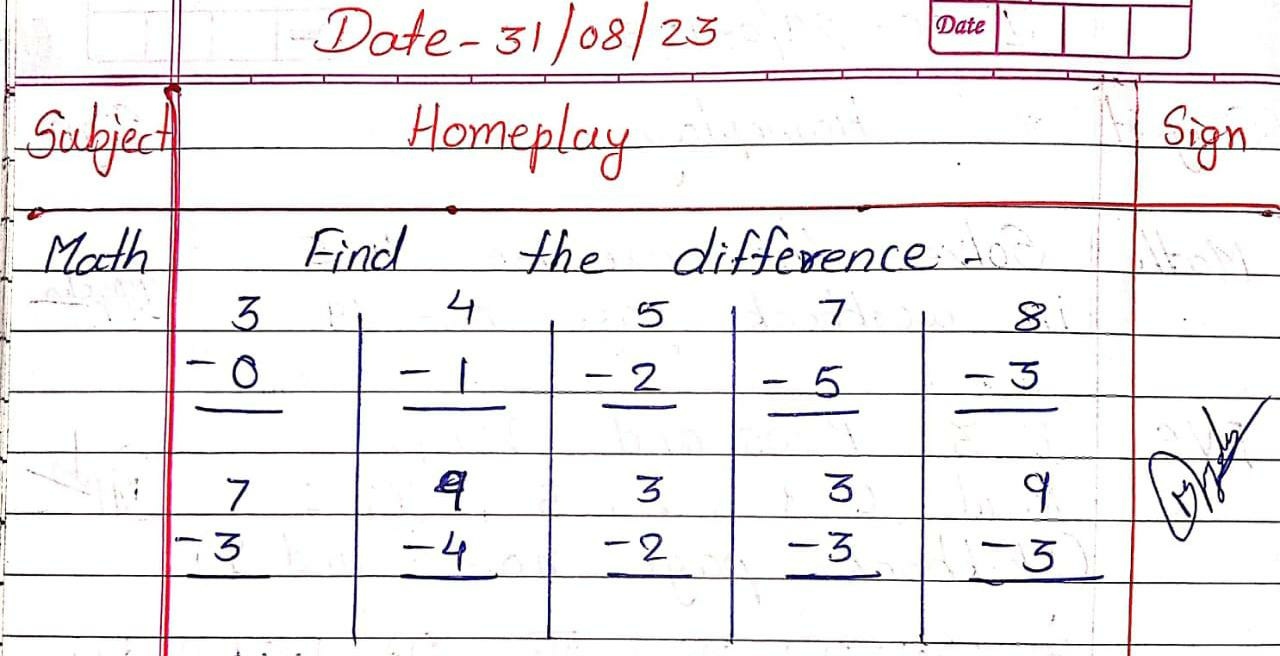 Date - 31/08/23
Date
Subject Homeplay Sign
Math Find the difference
3 4 5 7 8
- 0 - 1 - 2 - 5 - 3
7 9 3 3 9
- 3 - 4 - 2 - 3 - 3